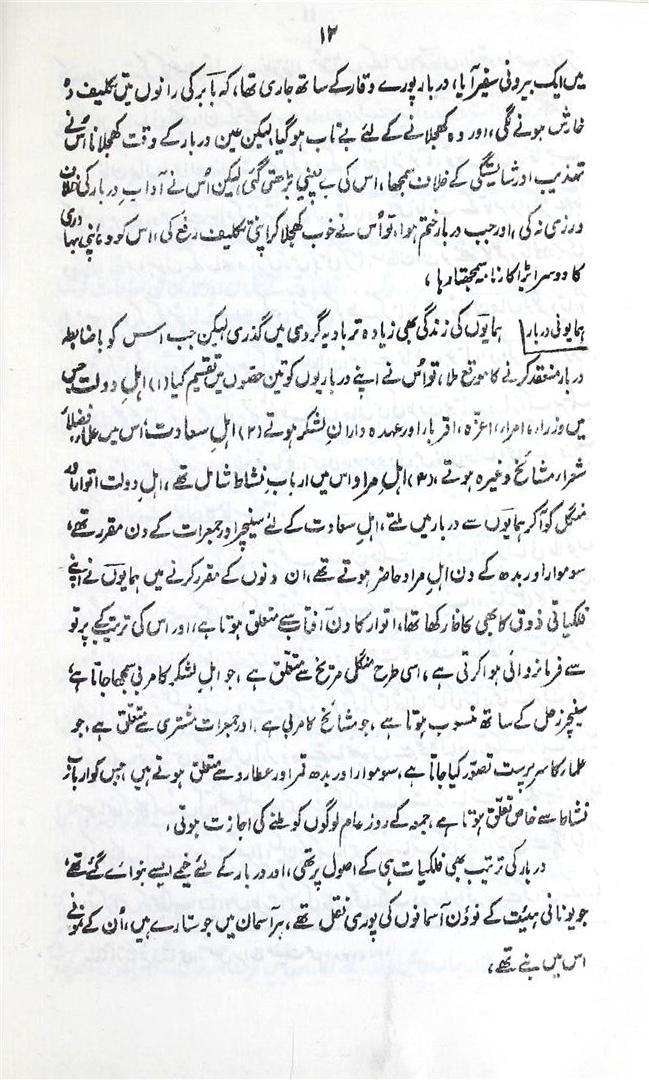 ۱۲
میں ایک بیرونی سفیر آیا، دربار پورے وقار کے ساتھ جاری تھا، کہ بابر کی رانوں میں تکلیف دہ
خارش ہونے لگی، اور وہ کھجلانے کے لئے بے تاب ہوگیا، لیکن عین دربار کے وقت کھجلانا اُس نے
تہذیب اور شائستگی کے خلاف سمجھا، اس کی بے چینی بڑھتی گئی لیکن اُس نے آداب دربار کی خلاف
ورزی نہ کی، اور جب دربار ختم ہوا، تو اُس نے خوب کھجلا کر اپنی تکلیف رفع کی، اس کو وہ اپنی بہادری
کا دوسرا بڑا کارنامہ سمجھتا رہا،
ہمایونی دربار ہمایوں کی زندگی بھی زیادہ تر بادیہ گردی میں گذری لیکن جب اسس کو باضابطہ
دربار منعقد کرنے کا موقع ملا، تو اُس نے اپنے درباریوں کو تین حصوں میں تقسیم کیا (۱) اہلِ دولت جس
میں وزراء، امراء، اعزّہ، اقربا اور عہدہ دارانِ لشکر ہوتے (۲) اہلِ سعادت: اس میں علماء، فضلاء
شعراء، مشائخ وغیرہ ہوتے، (۳) اہلِ مراد اس میں اربابِ نشاط شامل تھے، اہلِ دولت اتوار اور
منگل کو آکر ہمایوں سے دربار میں ملتے، اہلِ سعادت کے لئے سنیچر اور جمعرات کے دن مقرر تھے،
سوموار اور بدھ کے دن اہلِ مراد حاضر ہوتے تھے، ان دنوں کے مقرر کرنے میں ہمایوں نے اپنے
فلکیاتی ذوق کا بھی لحاظ رکھا تھا، اتوار کا دن آفتاب سے متعلق ہوتا ہے، اور اس کی ترتیب کے پرتو
سے فرمانروائی ہوا کرتی ہے، اسی طرح منگل مریخ سے متعلق ہے، جو اہلِ لشکر کا مربی سمجھا جاتا ہے،
سنیچر زحل کے ساتھ منسوب ہوتا ہے، جو مشائخ کا مربی ہے، اور جمعرات مشتری سے متعلق ہے، جو
علماء کا سرپرست تصور کیا جاتا ہے، سوموار اور بدھ قمر اور عطارد سے متعلق ہوتے ہیں، جس کو اربابِ
نشاط سے خاص تعلق ہوتا ہے، جمعہ کے روز عام لوگوں کو ملنے کی اجازت ہوتی،
دربار کی ترتیب بھی فلکیات ہی کے اصول پر تھی، اور دربار کے لئے خیمے ایسے بنوائے گئے تھے،
جو یونانی ہیئت کے نو وُن آسمانوں کی پوری نقل تھے، ہر آسمان میں جو ستارے ہیں، اُن کے نمونے
اس میں بنے تھے،